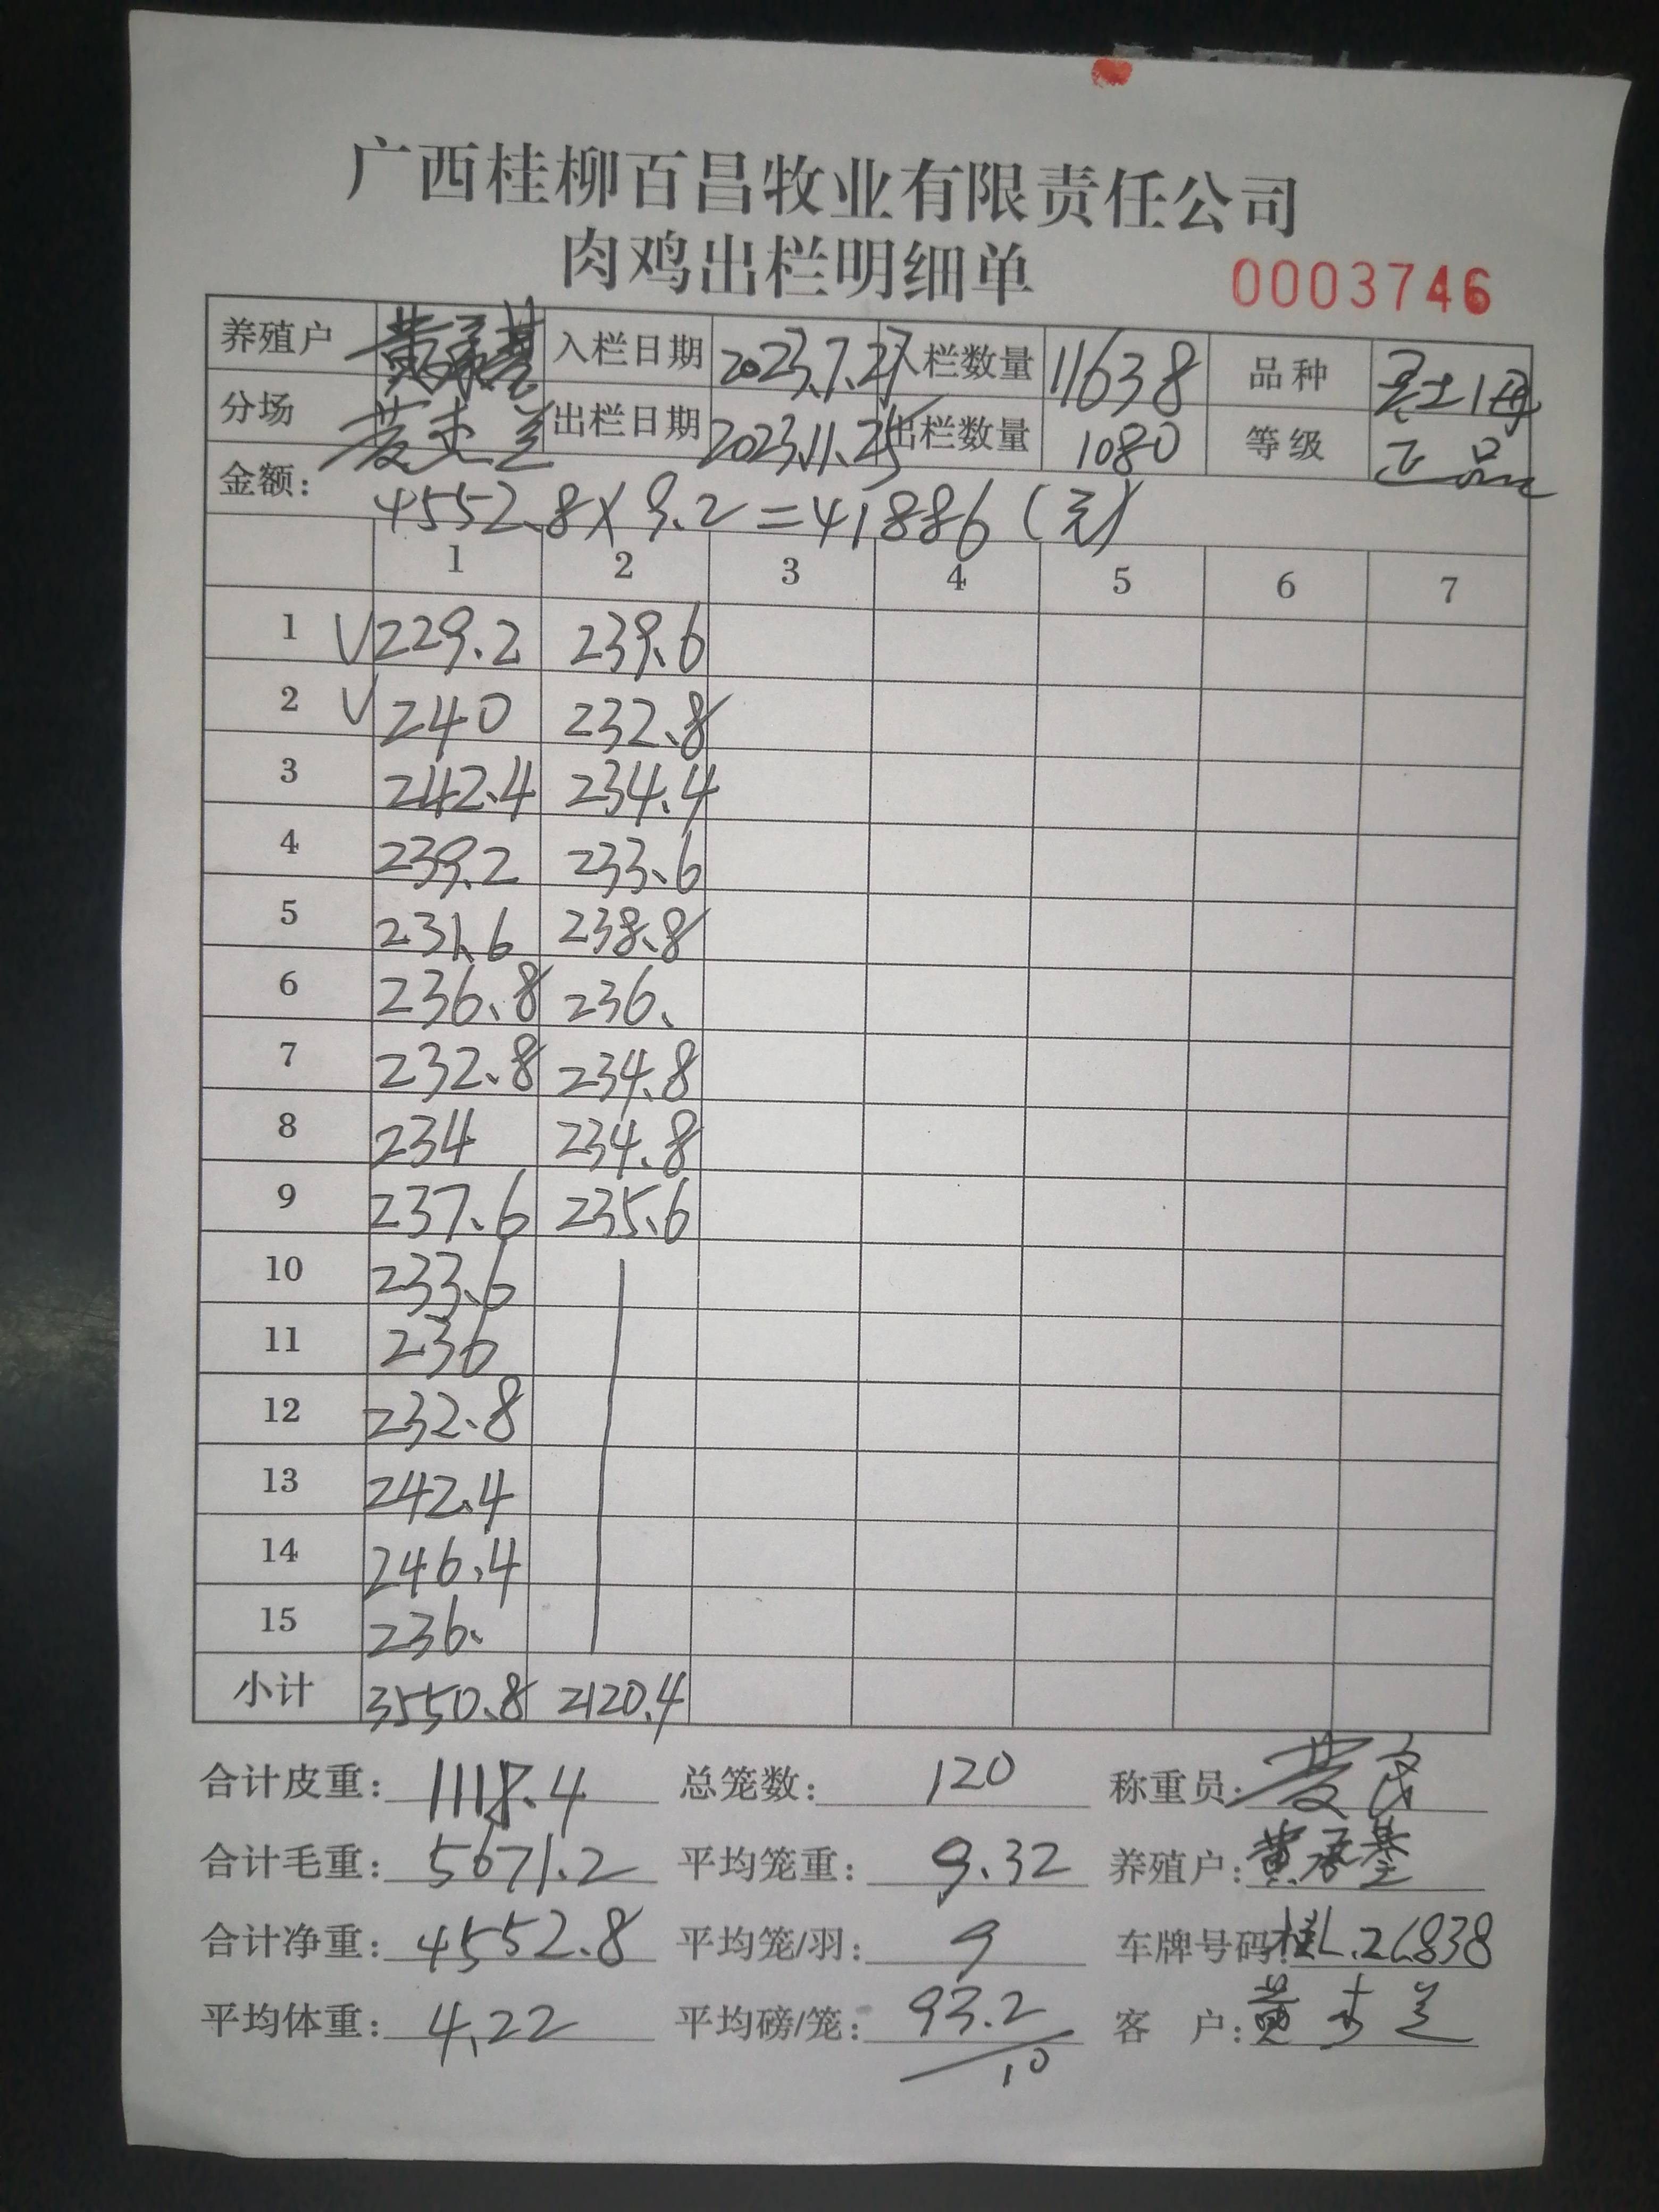 广西桂柳百昌牧业有限责任公司
肉鸡出栏明细单 0003746
养殖户 入栏日期 2023.7.27 入栏数量 11638 品种
分场 出栏日期 2023.11.25 出栏数量 1080 等级 正品
金额: 4552.8×9.2=41886(元)
1 2 3 4 5 6 7
1 V 229.2 239.6
2 V 240 232.8
3 242.4 234.4
4 239.2 233.6
5 231.6 238.8
6 236.8 236.
7 232.8 234.8
8 234 234.8
9 237.6 235.6
10 233.6
11 236
12 232.8
13 242.4
14 246.4
15 236.
小计 3550.8 2120.4
合计皮重: 1118.4 总笼数: 120 称重员:
合计毛重: 5671.2 平均笼重: 9.32 养殖户: 黄承基
合计净重: 4552.8 平均笼/羽: 9 车牌号码: 桂L.26838
平均体重: 4.22 平均磅/笼: 93.2/10 客户: 黄